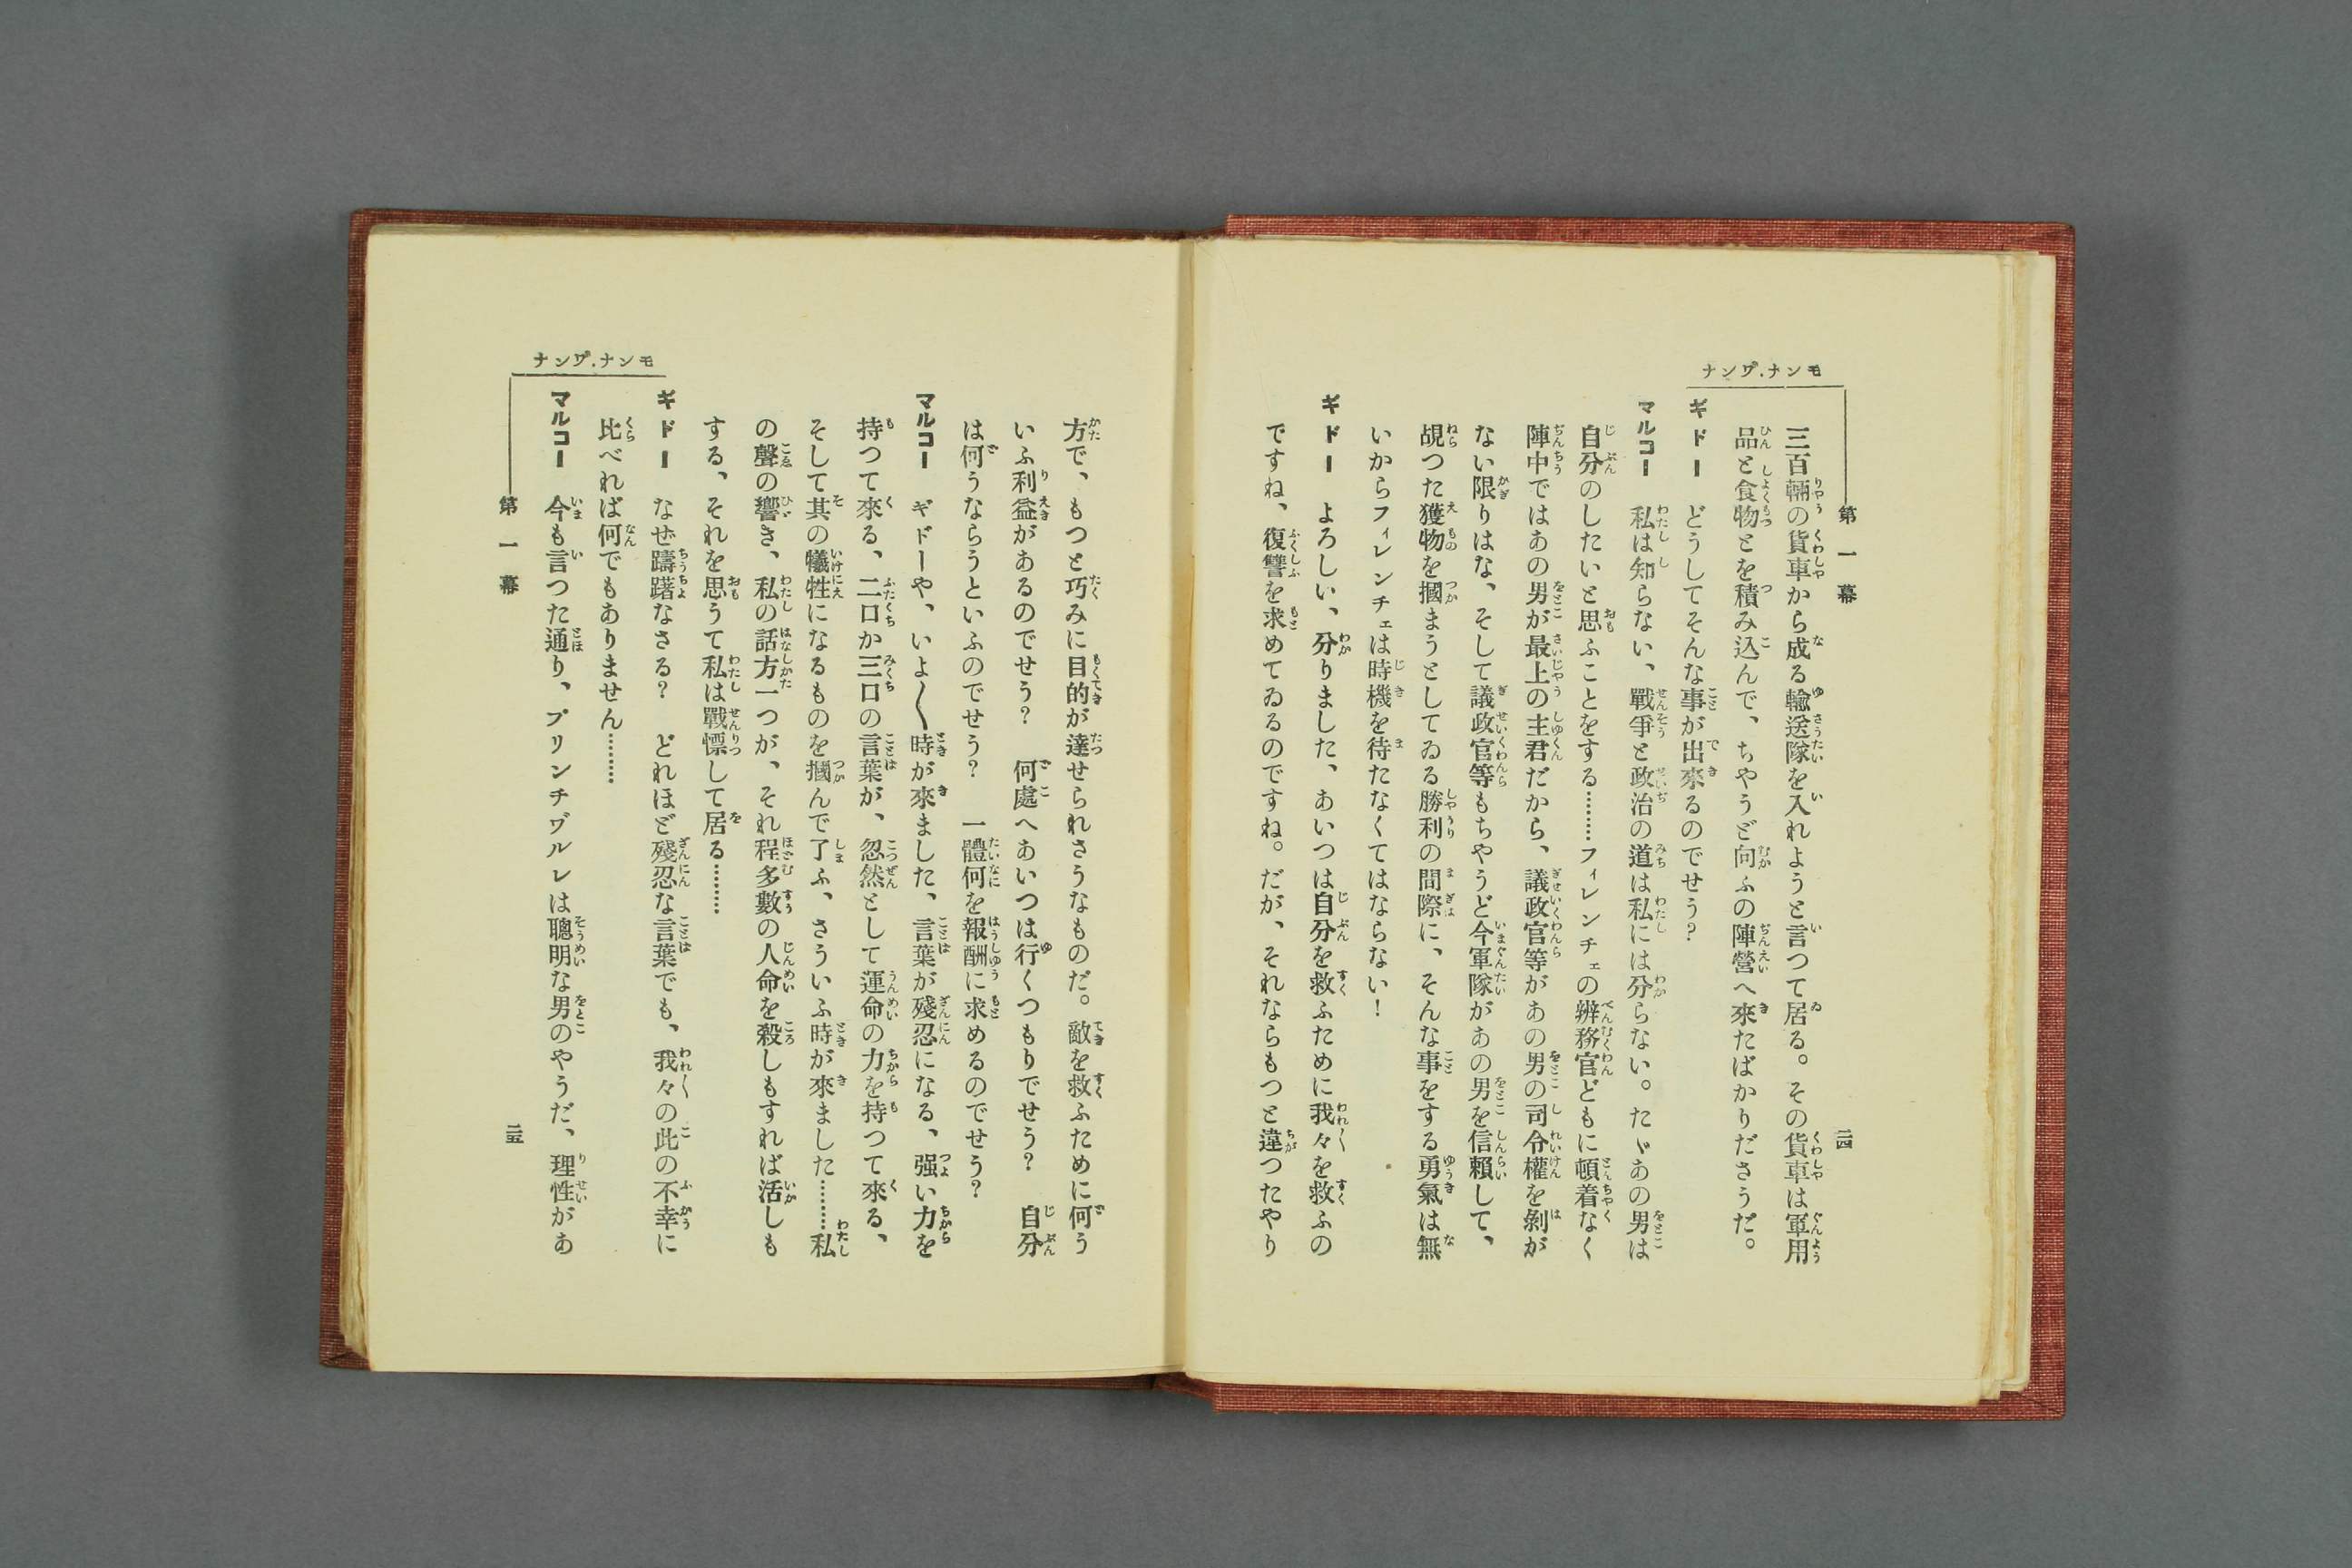 モンナ.ワ゛ンナ
第一幕
二四
三百輛の貨車から成る輸送隊を入れようと言つて居る。その貨車は軍用
品と食物とを積み込んで、ちやうど向ふの陣營へ來たばかりださうだ。
ギドー　どうしてそんな事が出來るのでせう？
マルコー　私は知らない、戰爭と政治の道は私には分らない。たゞあの男は
自分のしたいと思ふことをする………フィレンチェの辨務官どもに頓着なく
陣中ではあの男が最上の主君だから、議政官等があの男の司令權を剝が
ない限りはな、そして議政官等もちやうど今軍隊があの男を信賴して、
覘つた獲物を摑まうとしてゐる勝利の間際に、そんな事をする勇氣は無
いからフィレンチェは時機を待たなくてはならない！
ギドー　よろしい、分りました、あいつは自分を救ふために我々を救ふの
ですね、復讐を求めてゐるのですね。だが、それならもつと違つたやり
方で、もつと巧みに目的が達せられさうなものだ。敵を救ふために何う
いふ利益があるのでせう？　何處へあいつは行くつもりでせう？　自分
は何うならうといふのでせう？　一體何を報酬に求めるのでせう？
マルコー　ギドーや、いよ〱時が來ました、言葉が殘忍になる、强い力を
持つて來る、二口か三口の言葉が、忽然として運命の力を持つて來る、
そして其の犧牲になるものを摑んで了ふ、さういふ時が來ました………私
の聲の響き、私の話方一つが、それ程多數の人命を殺しもすれば活しも
する、それを思うて私は戰慄して居る………
ギドー　なぜ躊躇なさる？　どれほど殘忍な言葉でも、我々の此の不幸に
比べれば何でもありません………
マルコー　今も言つた通り、プリンチヴルレは聰明な男のやうだ、理性があ
モンナ.ワ゛ンナ
第一幕
二五